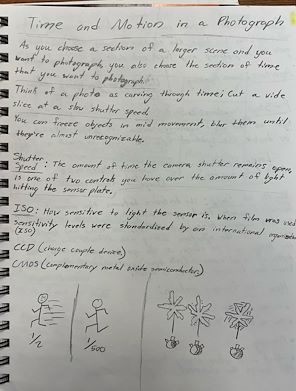 Time and Motion in a Photograph
As you choose a section of a larger scene and you
want to photograph, you also choose the section of time
that you want to photograph.
Think of a photo as carving through time; Cut a wide
slice at a slow shutter speed.
You can freeze objects in mid movement, blur them until
they're almost unrecognizable.
Shutter
Speed: The amount of time the camera shutter remains open,
is one of two controls you have over the amount of light
hitting the sensor plate.
ISO: How sensitive to light the sensor is. When film was used
sensitivity levels were standardized by an international
(ISO)
CCD (charge couple device)
CMOS (complementary metal oxide semiconductors)
1/2 1/500